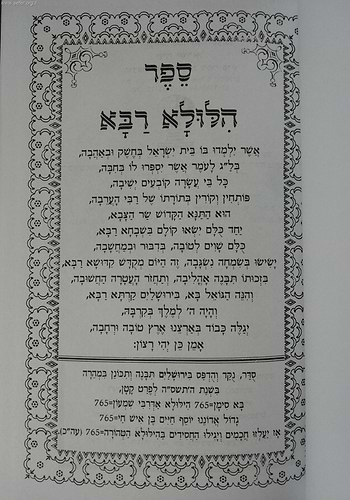 סֵפֶר
הִלּוּלָא רַבָּא
אֲשֶׁר יִלְמְדוּ בּוֹ בֵּית יִשְׂרָאֵל בְּחֵשֶׁק וּבְאַהֲבָה,
בְּל״ג לָעֹמֶר אֲשֶׁר יִסְפְּרוּ לוֹ בְּחִבָּה,
כָּל בֵּי עֲשָׂרָה קוֹבְעִים יְשִׁיבָה,
פּוֹתְחִין וְקוֹרִין בְּתוֹרָתוֹ שֶׁל רַבִּי הָעֲרֵבָה,
הוּא הַתַּנָּא הַקָּדוֹשׁ שַׂר הַצָּבָא,
יַחַד כֻּלָּם יִשְׂאוּ קוֹלָם בְּשִׁבְחָא רַבָּא,
כֻּלָּם שָׁוִים לְטוֹבָה, בְּדִבּוּר וּבְמַחֲשָׁבָה,
יָשִׂישׂוּ בְּשִׂמְחָה נִשְׂגָּבָה, זֶה הַיּוֹם מְקֻדָּשׁ קִדּוּשָׁא רַבָּא,
בִּזְכוּתוֹ תִּבָּנֶה אָהֳלִיבָה, וְתַחֲזֹר הָעֲטָרָה הַחֲשׁוּבָה,
וְהִנֵּה הַגּוֹאֵל בָּא, בִּירוּשָׁלַיִם קַרְתָּא רַבָּא,
וְהָיָה ה׳ לְמֶלֶךְ בְּקִרְבָּהּ,
יִגָּלֶה כְּבוֹד בְּאַרְצֵנוּ אֶרֶץ טוֹבָה וּרְחָבָה,
אָמֵן כֵּן יְהִי רָצוֹן:
סֻדַּר, נֻקַּד וְהֻדְפַּס בִּירוּשָׁלַיִם תִּבָּנֶה וְתִכּוֹנֵן בִּמְהֵרָה
בִּשְׁנַת ה׳תשס״ה לִפְרָט קָטָן,
בָּא סִימָן=765 הִילּוּלָא אַדְרַבִּי שִׁמְעוֹן=765
גָּדוֹל אֲדוֹנֵנוּ יוֹסֵף חַיִּים בֶּן אִישׁ חַי=765
אָז יַעַלְזוּ חֲכָמִים וְיָגִילוּ הַחֲסִידִים בְּהִילּוּלָא הַטְּהוֹרָה=765 (עה״כ)